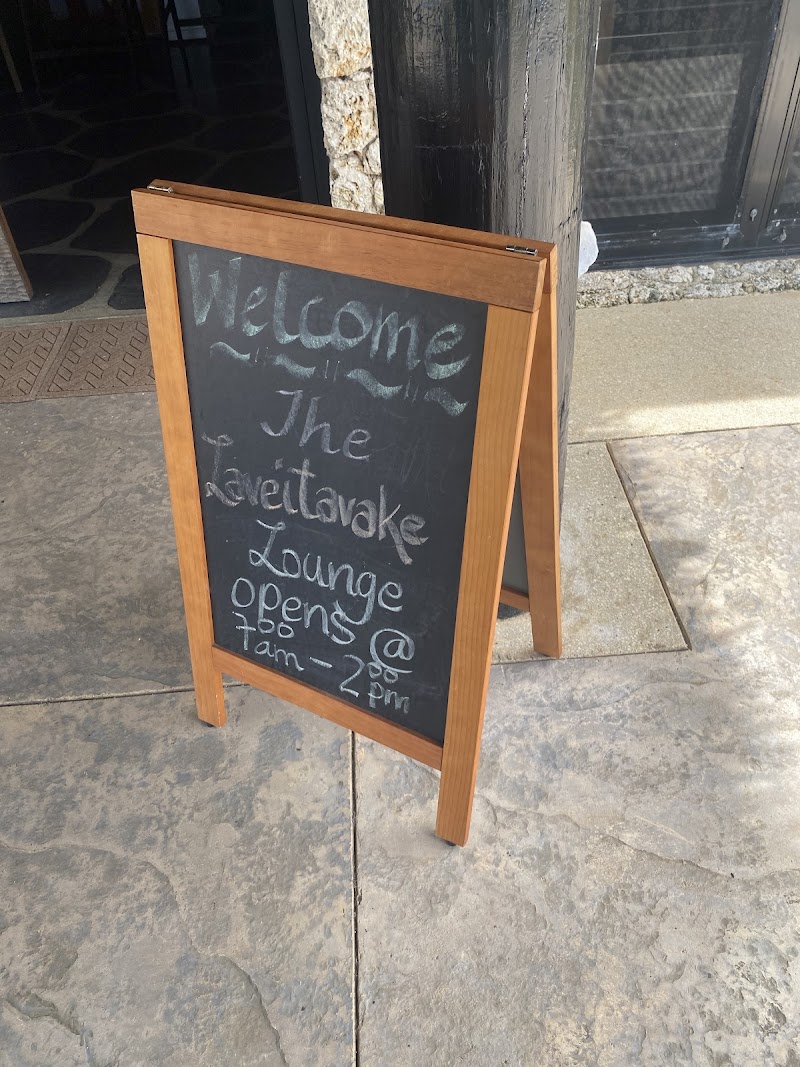 Welcome
The
Laveitavake
Lounge
opens @
7⁰⁰am – 2⁰⁰pm